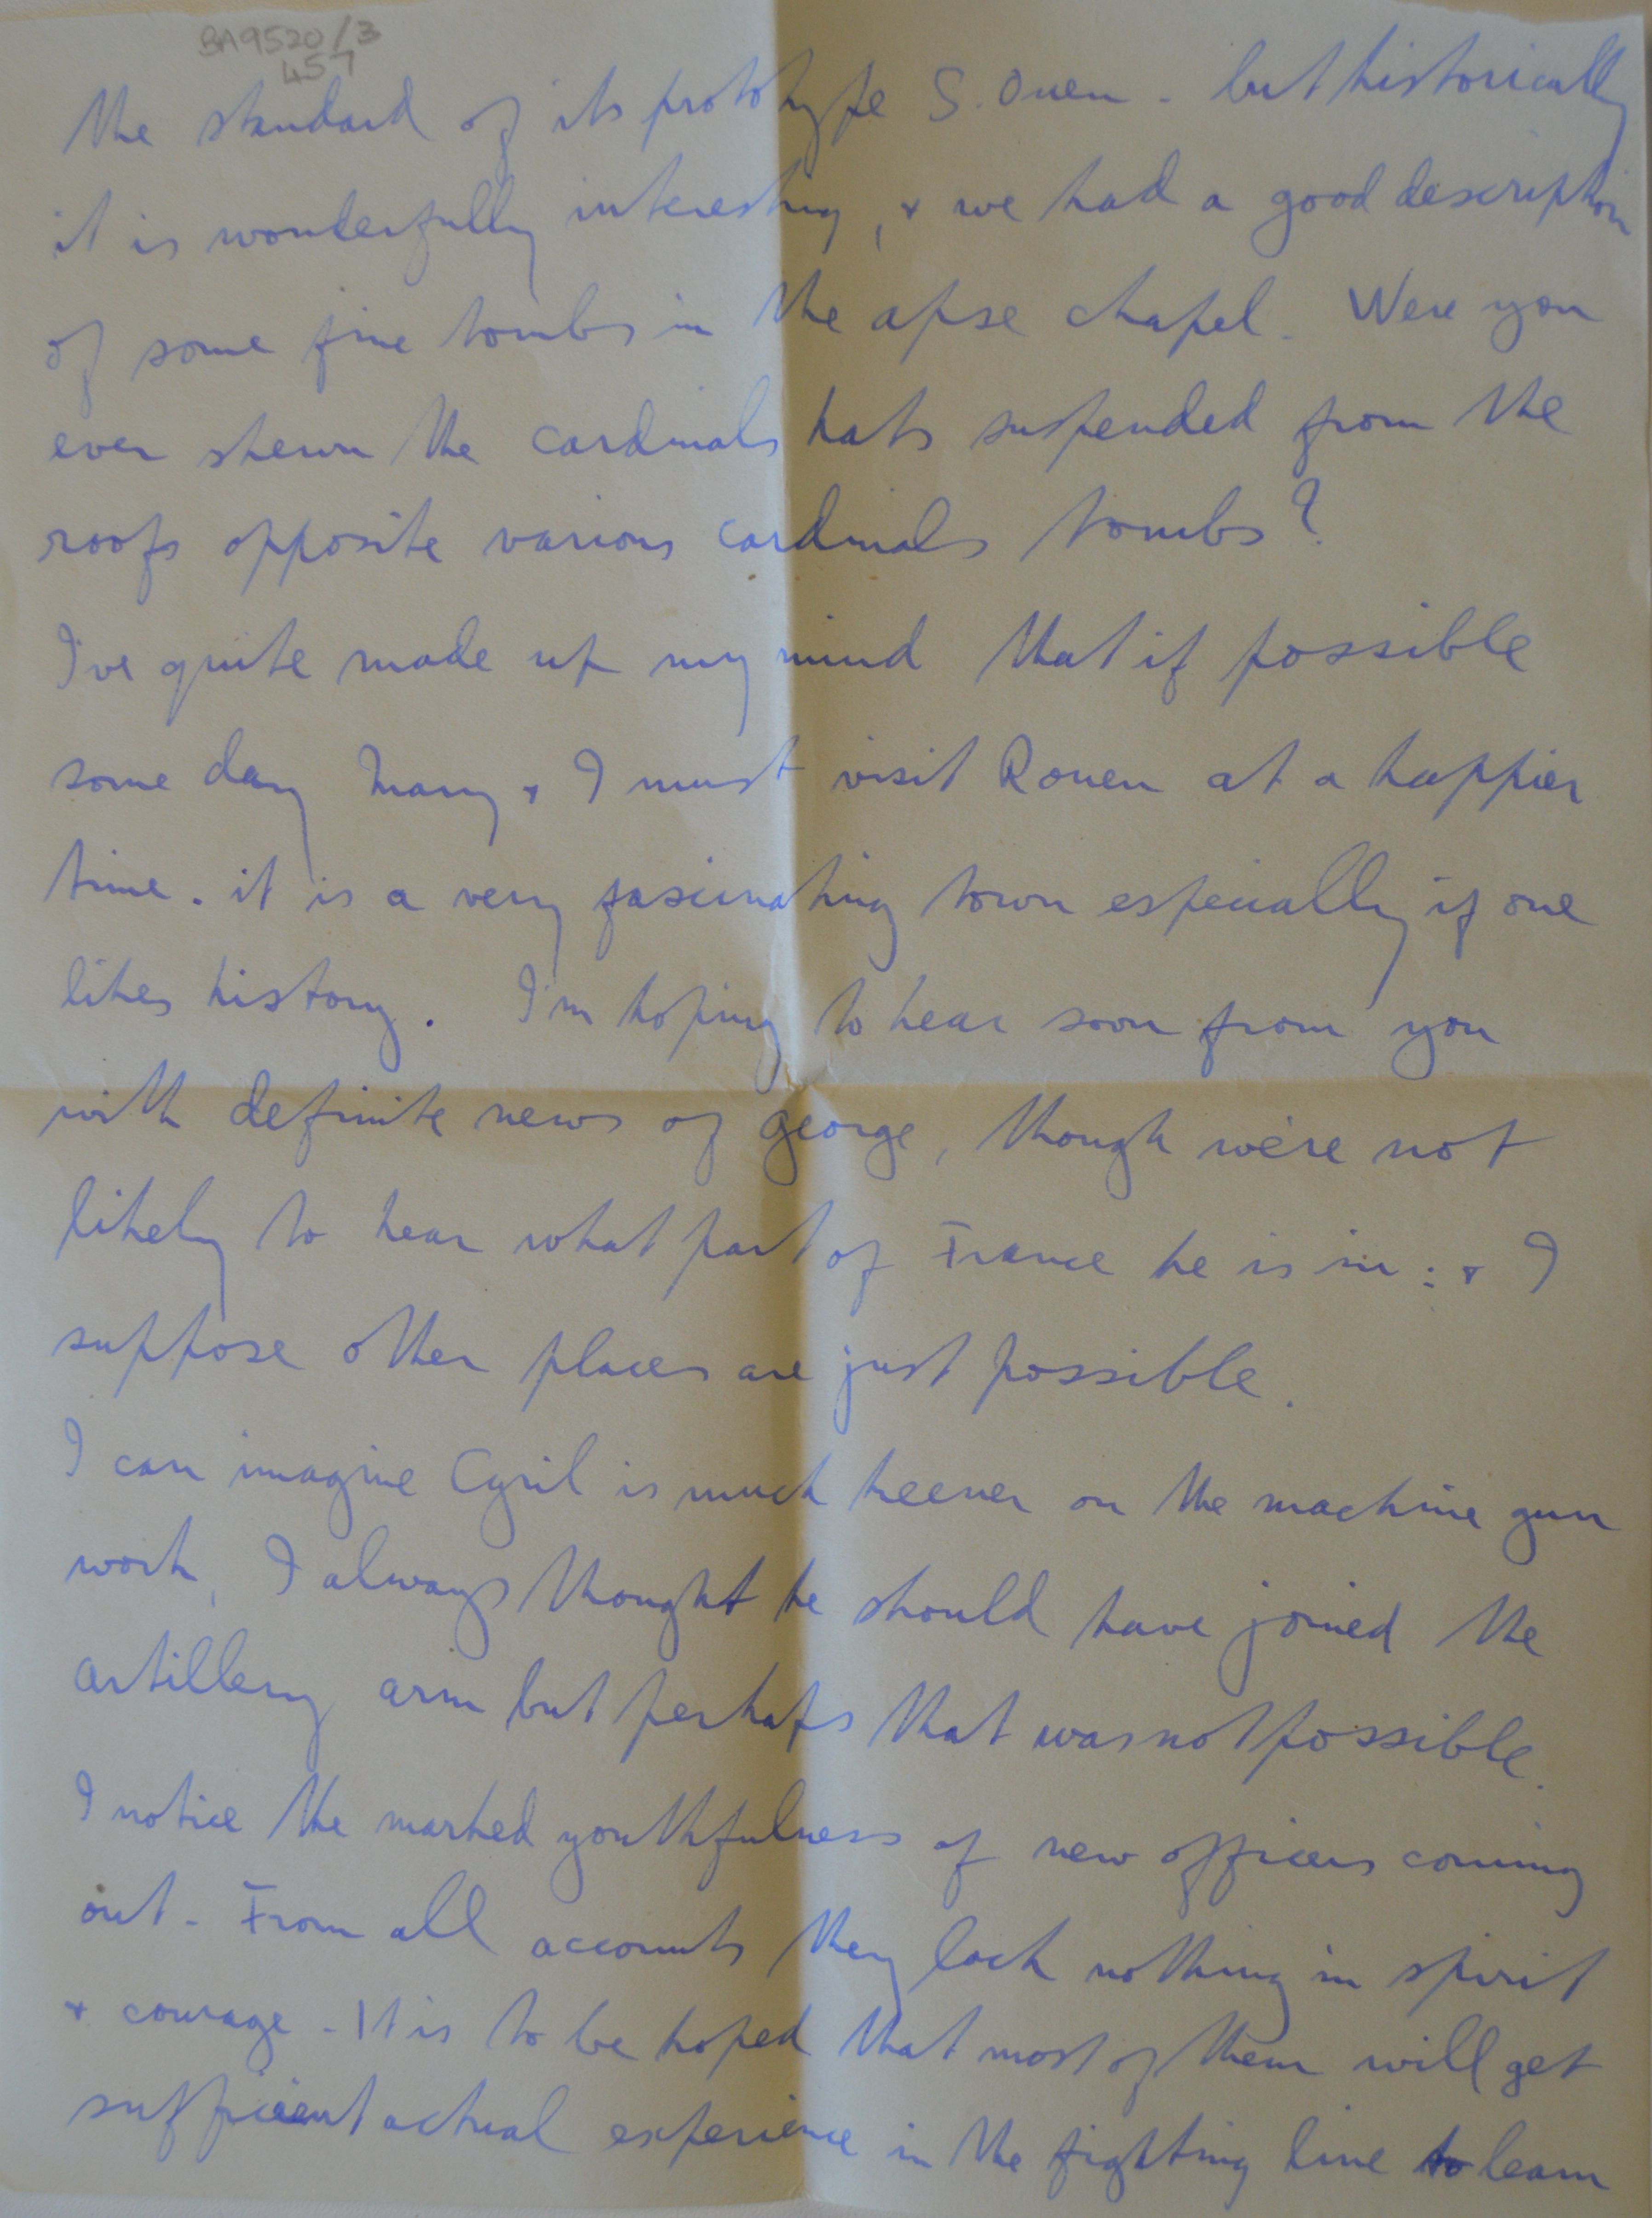 BA9520/3
457
the standard of its prototype S. Ouen - but historically
it is wonderfully interesting, & we had a good description
of some fine tombs in the apse chapel. Were you
ever shewn the cardinals hats suspended from the
roofs opposite various cardinals tombs?
I've quite made up my mind that if possible
some day Mary & I must visit Rouen at a happier
time. it is a very fascinating town especially if one
likes history. I'm hoping to hear soon from you
with definite news of George, though we're not
likely to hear what part of France he is in: & I
suppose other places are just possible.
I can imagine Cyril is much keener on the machine gun
work, I always thought he should have joined the
artillery arm but perhaps that was not possible.
I notice the marked youthfulness of new officers coming
out - From all accounts they lack nothing in spirit
& courage - It is to be hoped that most of them will get
sufficient actual experience in the fighting line to learn